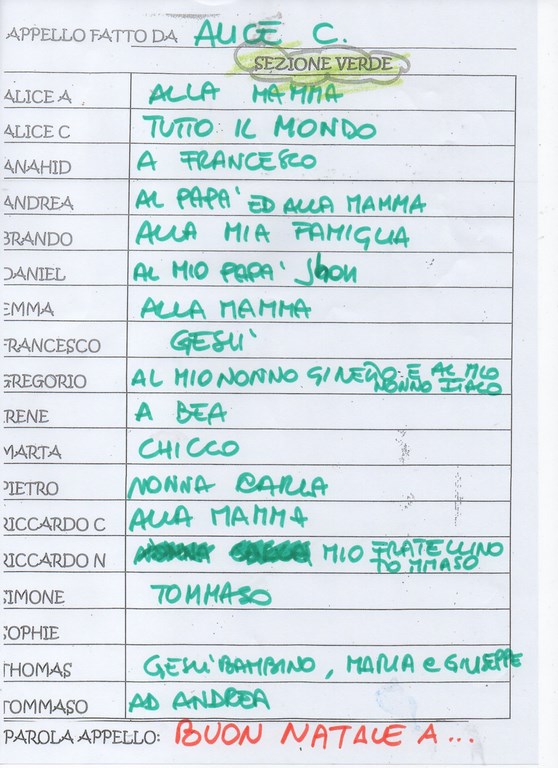 APPELLO FATTO DA ALICE C.
SEZIONE VERDE
ALICE A ALLA MAMMA
ALICE C TUTTO IL MONDO
ANAHID A FRANCESCO
ANDREA AL PAPA' ED ALLA MAMMA
BRANDO ALLA MIA FAMIGLIA
DANIEL AL MIO PAPA' Jhon
EMMA ALLA MAMMA
FRANCESCO GESU'
GREGORIO AL MIO NONNO GINETTO E AL MIO
NONNO ITALO
IRENE A BEA
MARTA CHICCO
PIETRO NONNA CARLA
RICCARDO C ALLA MAMMA
RICCARDO N MIO FRATELLINO
TOMMASO
SIMONE TOMMASO
SOPHIE
THOMAS GESU' BAMBINO, MARIA e GIUSEPPE
TOMMASO AD ANDREA
PAROLA APPELLO: BUON NATALE A...